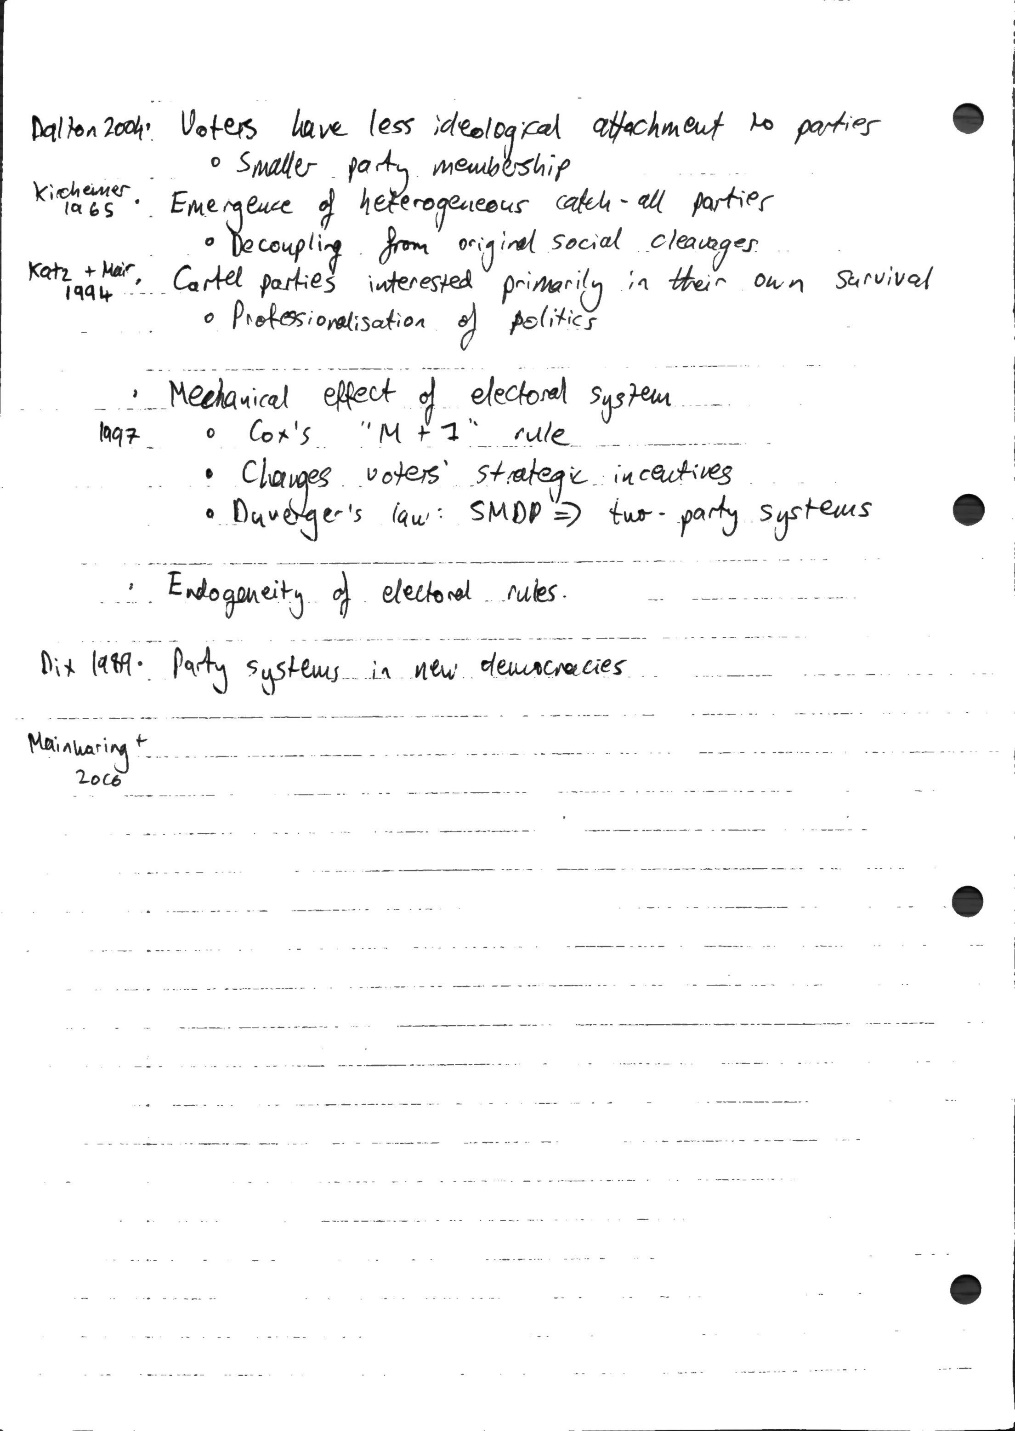 Dalton 2004 • Voters have less ideological attachment to parties
◦ Smaller party membership
Kircheimer 1965 • Emergence of heterogeneous catch-all parties
◦ Decoupling from original social cleavages
Katz + Mair 1994 • Cartel parties interested primarily in their own survival
◦ Professionalisation of politics
• Mechanical effect of electoral system
1997 ◦ Cox's "M + 1" rule
• Changes voters' strategic incentives
◦ Duverger's law: SMDP ⇒ two-party systems
• Endogeneity of electoral rules.
Dix 1989 • Party systems in new democracies
Mainwaring +
2006